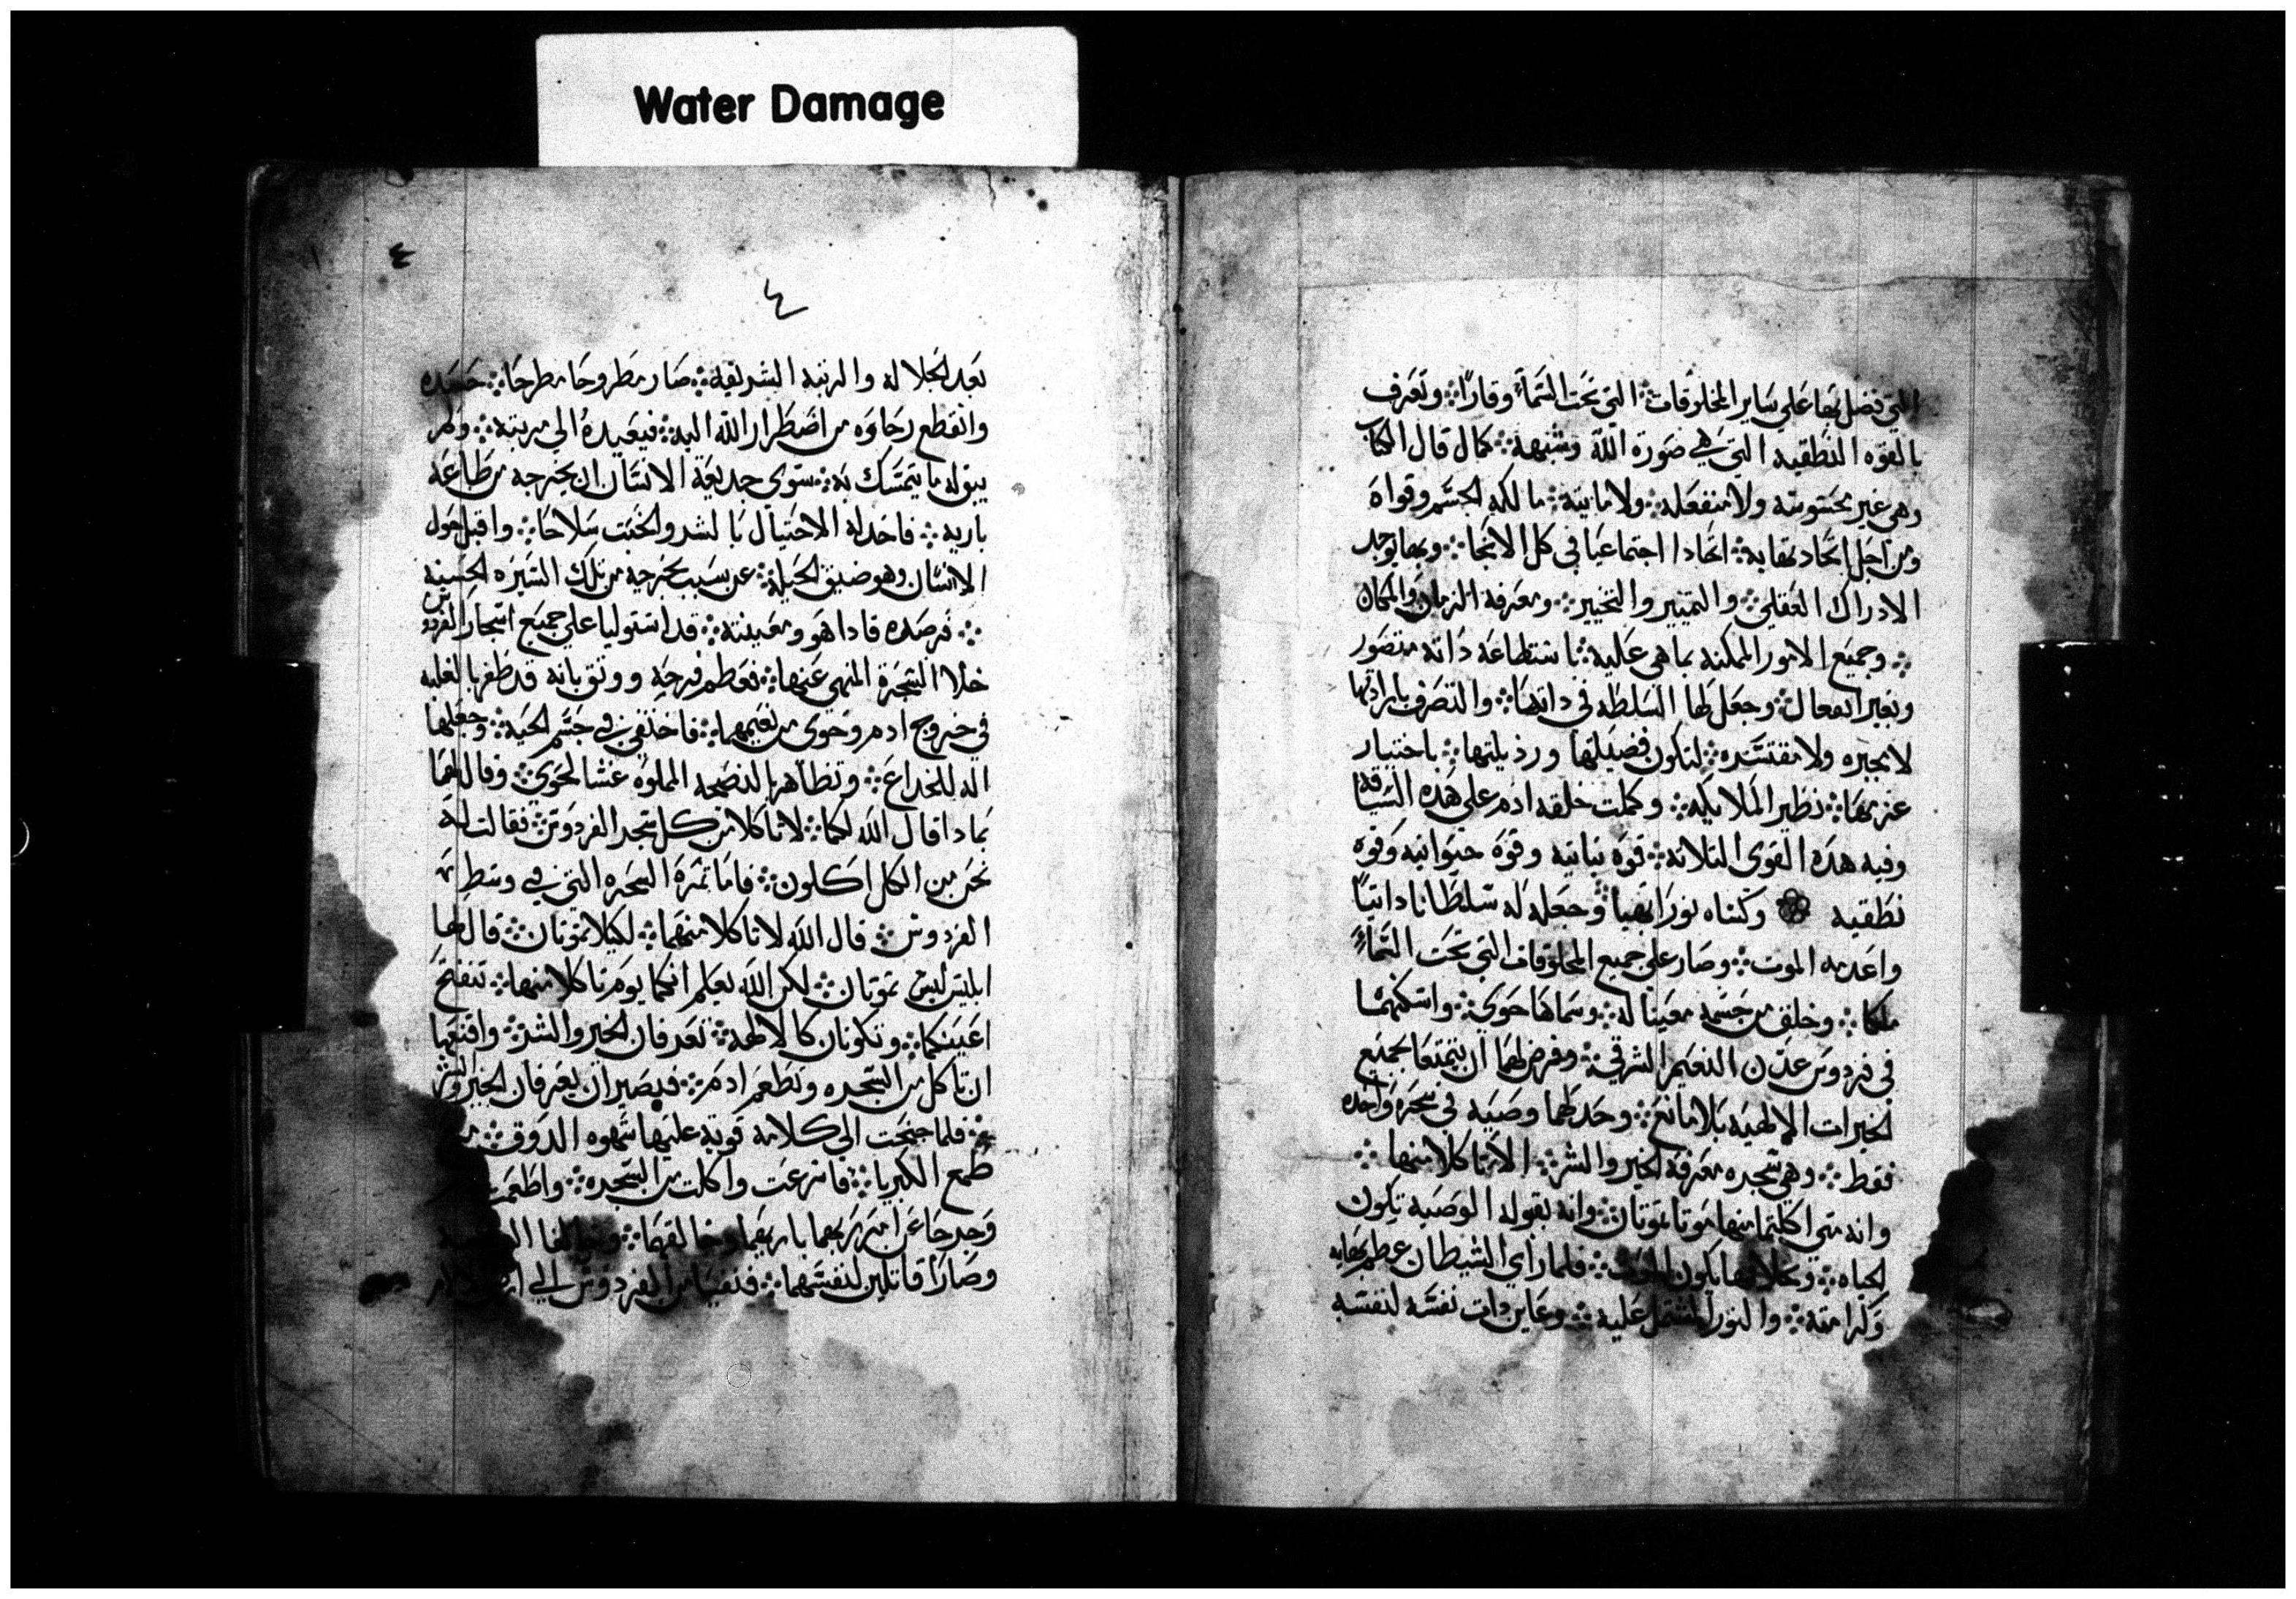 Water Damage
التي فضل بها على ساير المخلوقات ܀ التي تحت السماء وقارًا ܀ وتعرف
بالقوه النطقيه التي هي صورة الله وشبهه ܀ كمال قال الكتاب
وهي غير محسوسه ولا منفعله ܀ ولا مايته ܀ مالكه الجسم وقواه
ومن اجل اتحادها به ܀ اتحادا اجتماعيا في كل الانحا ܀ وبها يوجد
الادراك العقلي ܀ والتمييز والتخيير ܀ ومعرفة الزمان والمكان
܀ وجميع الامور الممكنه بما هي عليه ܀ باستطاعه داته متصور
وبغير انفعال ܀ وجعل لها السلطه في داتها ܀ والتصرف بارادتها
لا مجبره ولا مقتسره ܀ لتكون فضيلتها ورذيلتها ܀ باختيار
عزمها ܀ نظير الملايكه ܀ وكملت خلقه ادم على هذه السياقه
وفيه هده القوى التلاته ܀ قوه نباتيه وقوة حيوانيه وقوه
نطقيه وكساه نورا بهيا ܀ وجعله له سلطانا داتيا
واعدمه الموت ܀ وصار على جميع المخلوقات التي تحت السماء
ملكا ܀ وخلق من جسمه معينا له ܀ وسماها حوي ܀ واسكنهما
في فردوس عدن النعيم الشرقي ܀ وفرض لهما ان يتمتعا بجميع
الخيرات الالهيه بلا مانع ܀ وحد لهما وصيه في شجره واحده
فقط ܀ وهي شجره معرفة الخير والشر ܀ الا تاكلا منها ܀
وانه متى اكلتما منها موتا تموتان ܀ وانه بقوله الوصيه تكون
الحياه ܀ وبخلافها يكون الموت ܀ فلما راي الشيطان عظم بهايه
وكرامته ܀ والنور المشتمل عليه ܀ وعاين دات نفسه لنفسه
٤
٤
بعد الجلاله والرتبه الشريفه ܀ صار مطروحا مطرحا ܀ حسده
وانقطع رجاوه من اضطرار الله اليه ܀ فيعيده الي مرتبته ܀ ولم
يبق له ما يتمسك به ܀ سوى خديعة الانسان ان يخرجه من طاعة
باريه ܀ فاخد له الاحتيال بالشر والخبت سلاحا ܀ واقبل حول
الانسان وهو ضيق الحيله ܀ عن سبب يخرجه من تلك السيره الحسنه
܀ فرصده فاداهو ومعينته ܀ قد استوليا علي جميع اشجار الفردوس
خلا الشجرة المنهي عنها ܀ فعظم فرحه ووتق بانه قد ظفر بالغلبه
في خروج ادم وحوي من نعيمهما ܀ فاختفي في جسم الحيه ܀ وجعلها
اله للخداع ܀ وتظاهر بالنصيحه المملوه غشا لحوي ܀ وقال لهما
بما دا قال الله لكما ܀ لا تاكلا من كل شجر الفردوس ܀ فقالت له
نحن من الكل اكلون ܀ فاما تمرة الشجره التي في وسط
الفردوس ܀ قال الله لا تاكلا منهما ܀ لكيلا تموتان ܀ قال لها
ابليس ليس تموتان ܀ لكن الله يعلم انكما يوم تاكلا منها ܀ تنفتح
اعينكما ܀ وتكونان كالالهه ܀ تعرفان الخير والشر ܀ واقنعها
ان تاكل من الشجره وتطعم ادم ܀ فيصيران يعرفان الخير والشر
܀ فلما جنحت الي كلامه قوية عليها شهوه الدوق ܀
طمع الكبريا ܀ فاسرعت واكلت من الشجره ܀ واطعمت
وجدحا عن امر ربهما باريهما وخالقهما ܀ وخالفا
وصارا قاتلين لنفسهما ܀ فنفيا من الفردوس الي